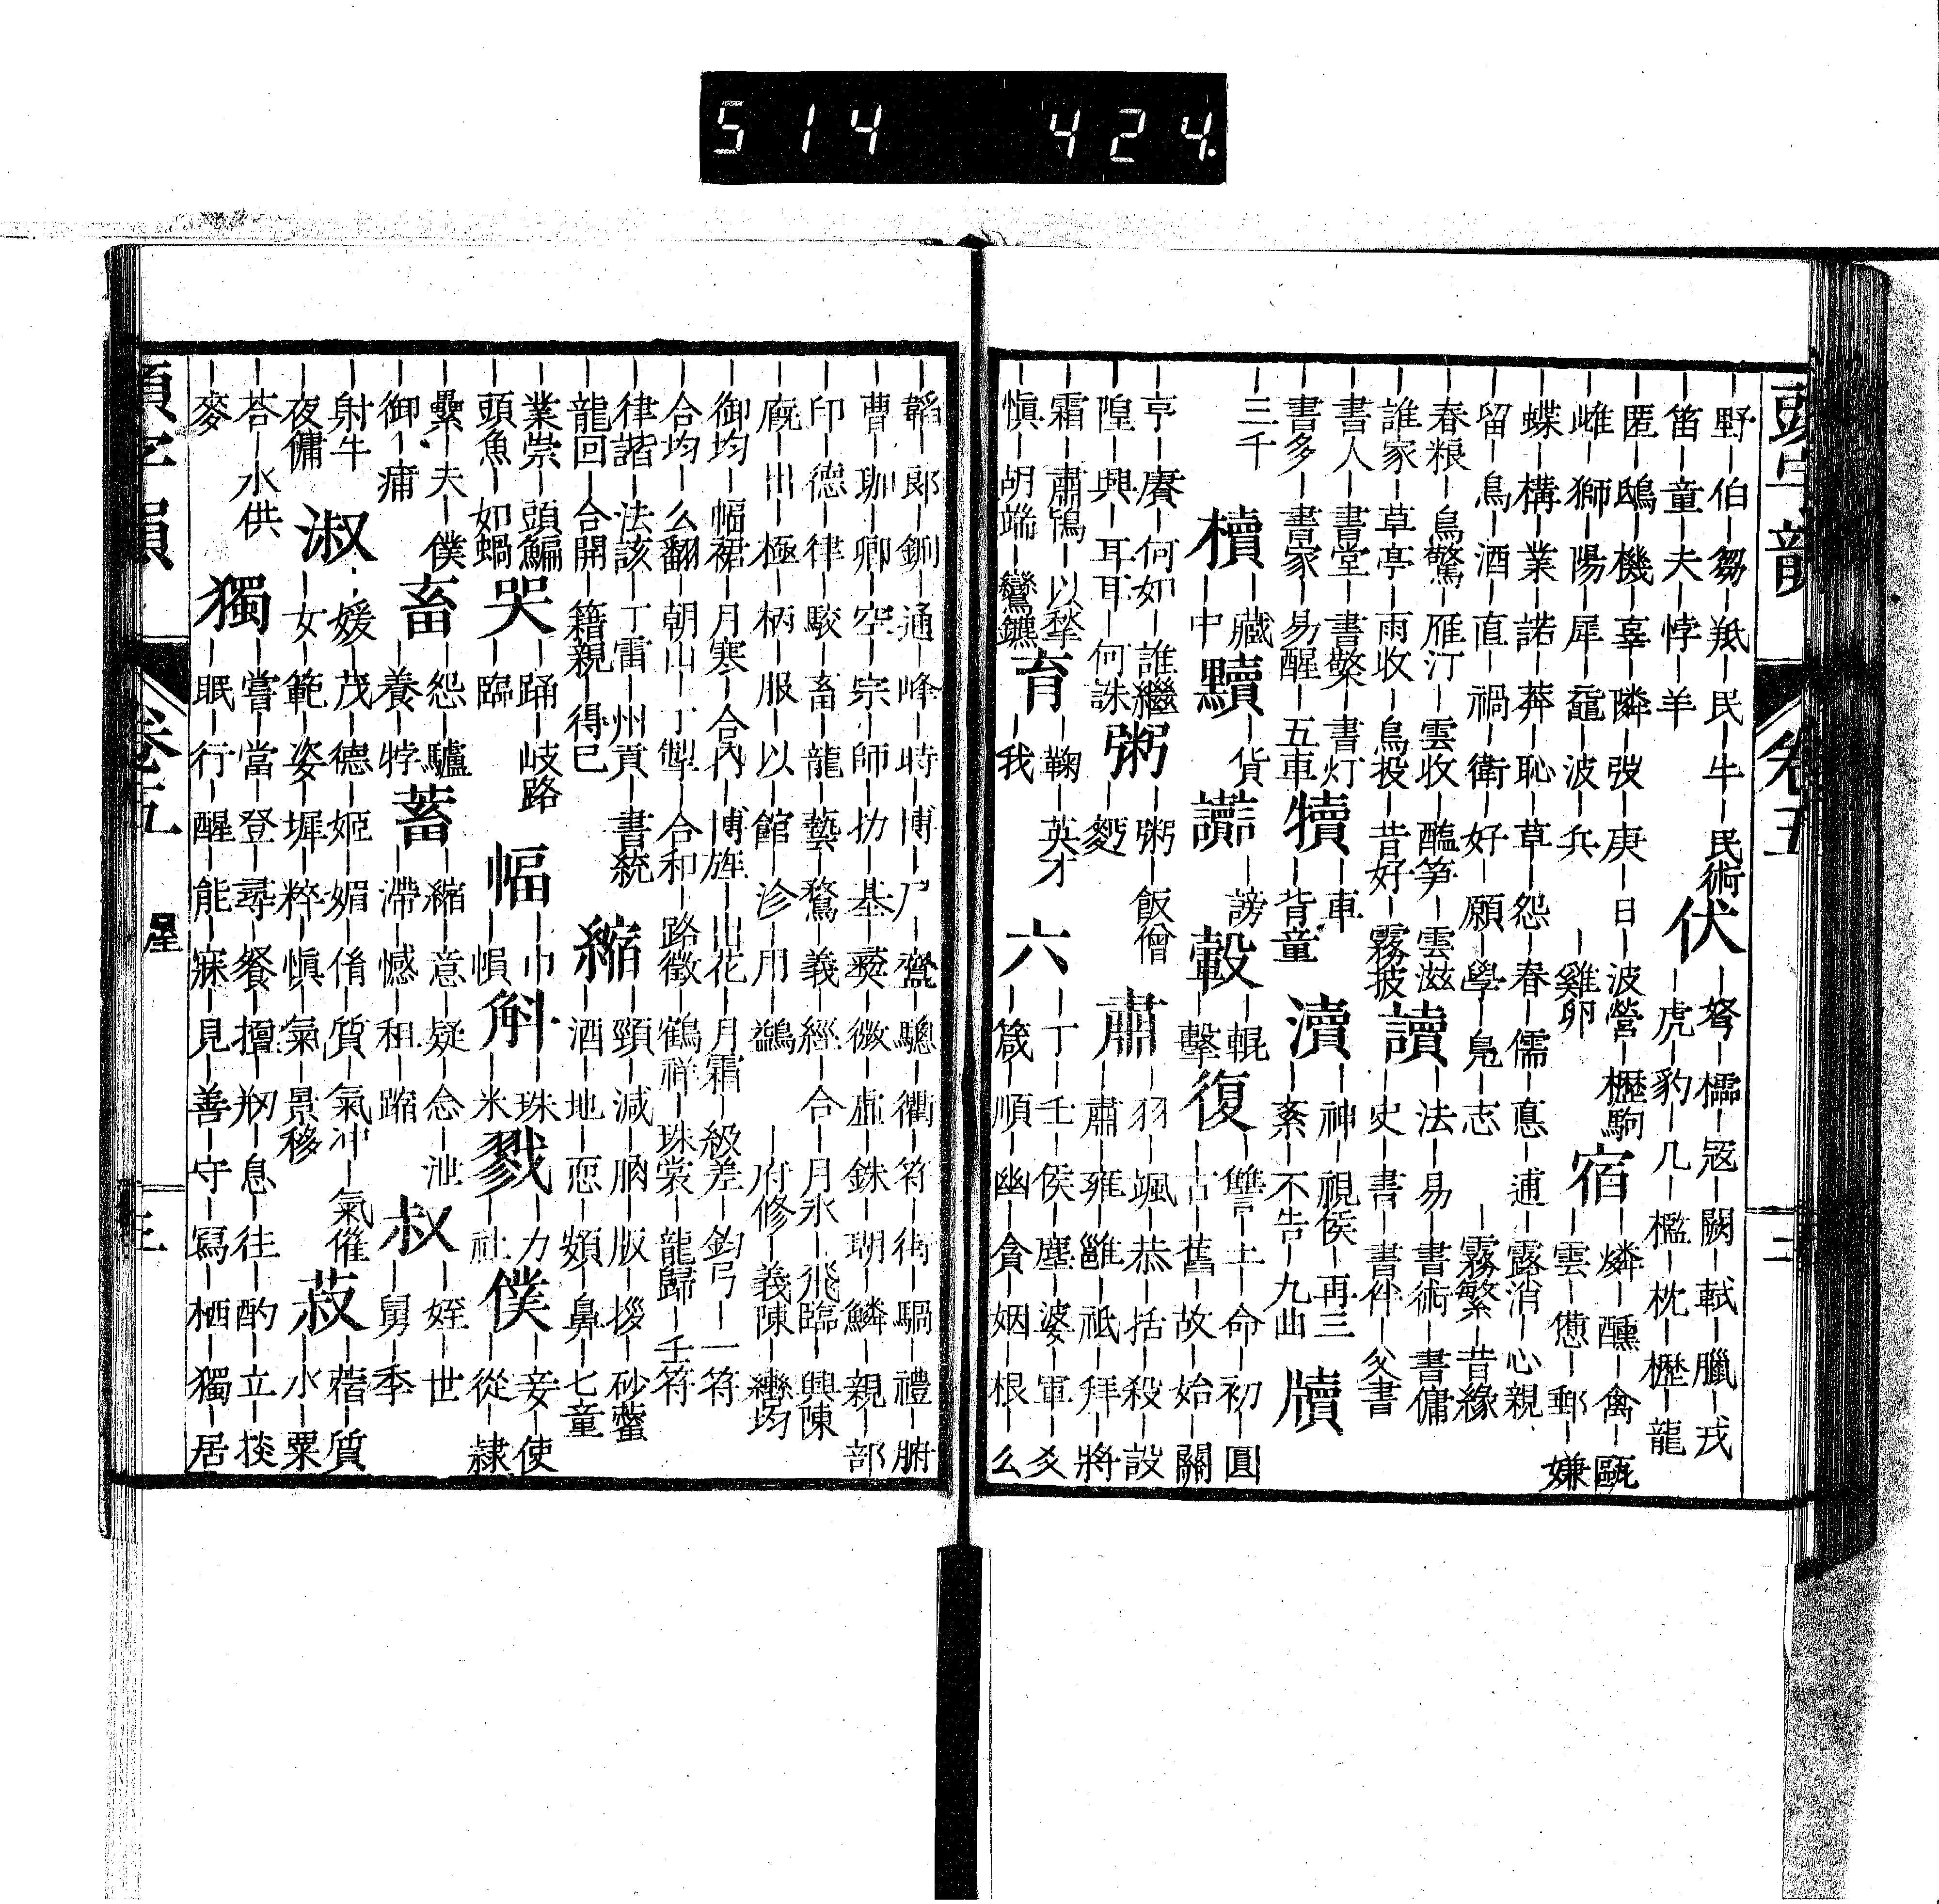 514 424
頭字韻
卷五
二
｜野｜伯｜芻｜羝｜民｜牛｜民術
｜笛｜童｜夫｜悖｜羊
伏
｜弩｜櫺｜寇｜闕｜軾｜臘｜戎
｜虎｜豹｜几｜檻｜枕｜櫪｜龍
｜匿｜鴟｜機｜辜｜隣｜弢｜庚｜日｜波營｜櫪駒
｜雌｜獅｜陽｜犀｜黿｜波｜兵｜雞卵
宿
｜燐｜醺｜禽｜甌
｜雲｜憊｜郵｜嫌
｜蝶｜構｜業｜諾｜莽｜恥｜草｜怨｜春｜儒｜悳｜逋｜露消｜心親
｜留｜鳥｜酒｜直｜禍｜衛｜好｜願｜學｜鳬｜志｜霧繁｜昔緣
｜春粮｜鳥驚｜雁汀｜雲收｜醢笋｜雲滋
｜誰家｜草亭｜雨收｜鳥投｜昔好｜霧披
讀
｜法｜易｜書術｜書傭
｜史｜書｜書伴｜父書
｜書人｜書堂｜書檠｜書灯
｜書多｜書家｜易醒｜五車
犢
｜車
｜背童
瀆
｜神｜視侯｜再三
｜紊｜不告｜九曲
牘
｜三千
櫝
｜藏
｜中
黷
｜貨
讟
｜謗
轂
｜輥
｜擊
復
｜讐｜土｜命｜初｜圓
｜古｜舊｜故｜始｜關
｜亨｜賡｜何如｜誰繼
｜隍｜興｜耳耳｜何誅
粥
｜粥｜飯僧
｜麪
肅
｜羽｜颯｜恭｜括｜殺｜設
｜肅｜雍｜雝｜祇｜拜｜將
｜霜｜肅鴇｜以犂
｜愼｜胡端｜鸞鑣
育
｜鞠｜英才
｜我
六
｜丁｜壬｜侯｜塵｜婆｜軍｜爻
｜箴｜順｜幽｜貪｜姻｜根｜么
｜韜｜郞｜鉶｜通｜峰｜時｜博｜尸｜齏｜驄｜衢｜符｜街｜騧｜禮｜腑
｜曹｜珈｜卿｜空｜宗｜師｜扐｜基｜爻｜微｜虛｜銖｜瑚｜鱗｜親｜部
｜印｜德｜律｜駮｜畜｜龍｜藝｜鶩｜義｜經｜合｜月氷｜飛臨｜興陳
｜廐｜出｜極｜柄｜服｜以｜館｜沴｜用｜鷁｜府修｜義陳｜轡均
｜御均｜幅裙｜月寒｜合內｜博旌｜出花｜月霜｜級差｜鈞弓｜一符
｜合均｜么翻｜朝山｜丁製｜合和｜路徵｜鶴祥｜珠裳｜龍歸｜壬符
｜律諧｜法該｜丁雷｜州貢｜書統
｜龍回｜合開｜籍親｜得巳
縮
｜頸｜減｜朒｜版｜拶｜砂蠻
｜酒｜地｜恧｜頞｜鼻｜七童
｜業崇｜頭鯿
｜頭魚｜如蝸
哭
｜踊｜岐路
｜臨
幅
｜巾
｜幀
斛
｜珠
｜米
戮
｜力
｜社
僕
｜妾｜使
｜從｜隷
｜纍｜夫｜僕
｜御｜痡
畜
｜怨｜驢
｜養｜牸
蓄
｜縮｜意｜疑｜念｜泄
｜滯｜憾｜租｜蹜
叔
｜姪｜世
｜舅｜季
｜射牛
｜夜傭
淑
｜媛｜茂｜德｜姬｜媚｜脩｜質｜氣冲｜氣催
｜女｜範｜姿｜墀｜粹｜愼｜氣｜景移
菽
｜藿｜質
｜水｜粟
｜荅｜水供
｜麥
獨
｜嘗｜當｜登｜尋｜餐｜擅｜抝｜息｜往｜酌｜立｜掞
｜眠｜行｜醒｜能｜寐｜見｜善｜守｜寫｜栖｜獨｜居
頭字韻
卷五
屋
三